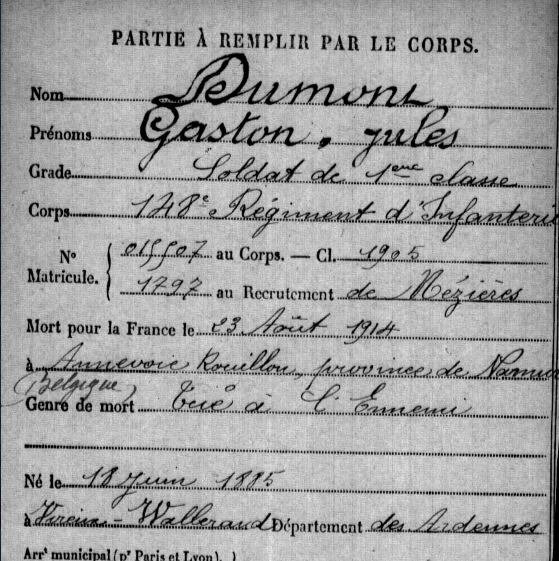 PARTIE À REMPLIR PAR LE CORPS.
Nom Dumont
Prénoms Gaston. Jules
Grade Soldat de 1ère classe
Corps 148e Régiment d'Infanterie
No Matricule. 015507 au Corps. — Cl. 1905
1797 au Recrutement de Mézières
Mort pour la France le 23 Août 1914
à Annevoie Rouillon, province de Namur
(Belgique)
Genre de mort Tué à l'Ennemi
Né le 18 Juin 1885
à Vireux-Wallerand Département des Ardennes
Arrt municipal (pr Paris et Lyon).